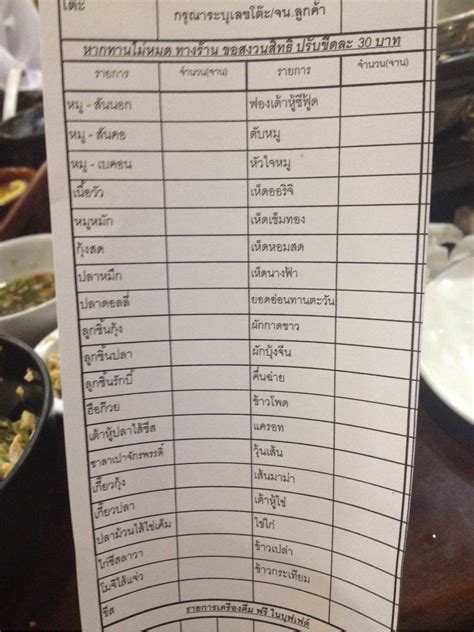 โต๊ะ กรุณาระบุเลขโต๊ะ/จน.ลูกค้า
หากทานไม่หมด ทางร้าน ขอสงวนสิทธิ์ ปรับขีดละ 30 บาท
รายการ จำนวน(จาน) รายการ จำนวน(จาน)
หมู - สันนอก ฟองเต้าหู้ซีฟู้ด
หมู - สันคอ ตับหมู
หมู - เบคอน หัวใจหมู
เนื้อวัว เห็ดออริจิ
หมูหมัก เห็ดเข็มทอง
กุ้งสด เห็ดหอมสด
ปลาหมึก เห็ดนางฟ้า
ปลาดอลลี่ ยอดอ่อนทานตะวัน
ลูกชิ้นกุ้ง ผักกาดขาว
ลูกชิ้นปลา ผักบุ้งจีน
ลูกชิ้นรักบี้ คื่นฉ่าย
ฮือก๊วย ข้าวโพด
เต้าหู้ปลาไส้ชีส แครอท
ซาลาเปาจักรพรรดิ์ วุ้นเส้น
เกี๊ยวกุ้ง เส้นมาม่า
เกี๊ยวปลา เต้าหู้ไข่
ปลาม้วนไส้ไข่เค็ม ไข่ไก่
ไก่ชีสลาวา ข้าวเปล่า
โมจิไส้แจ่ว ข้าวกระเทียม
ชีส
รายการเครื่องดื่ม ฟรี ในบุฟเฟ่ต์